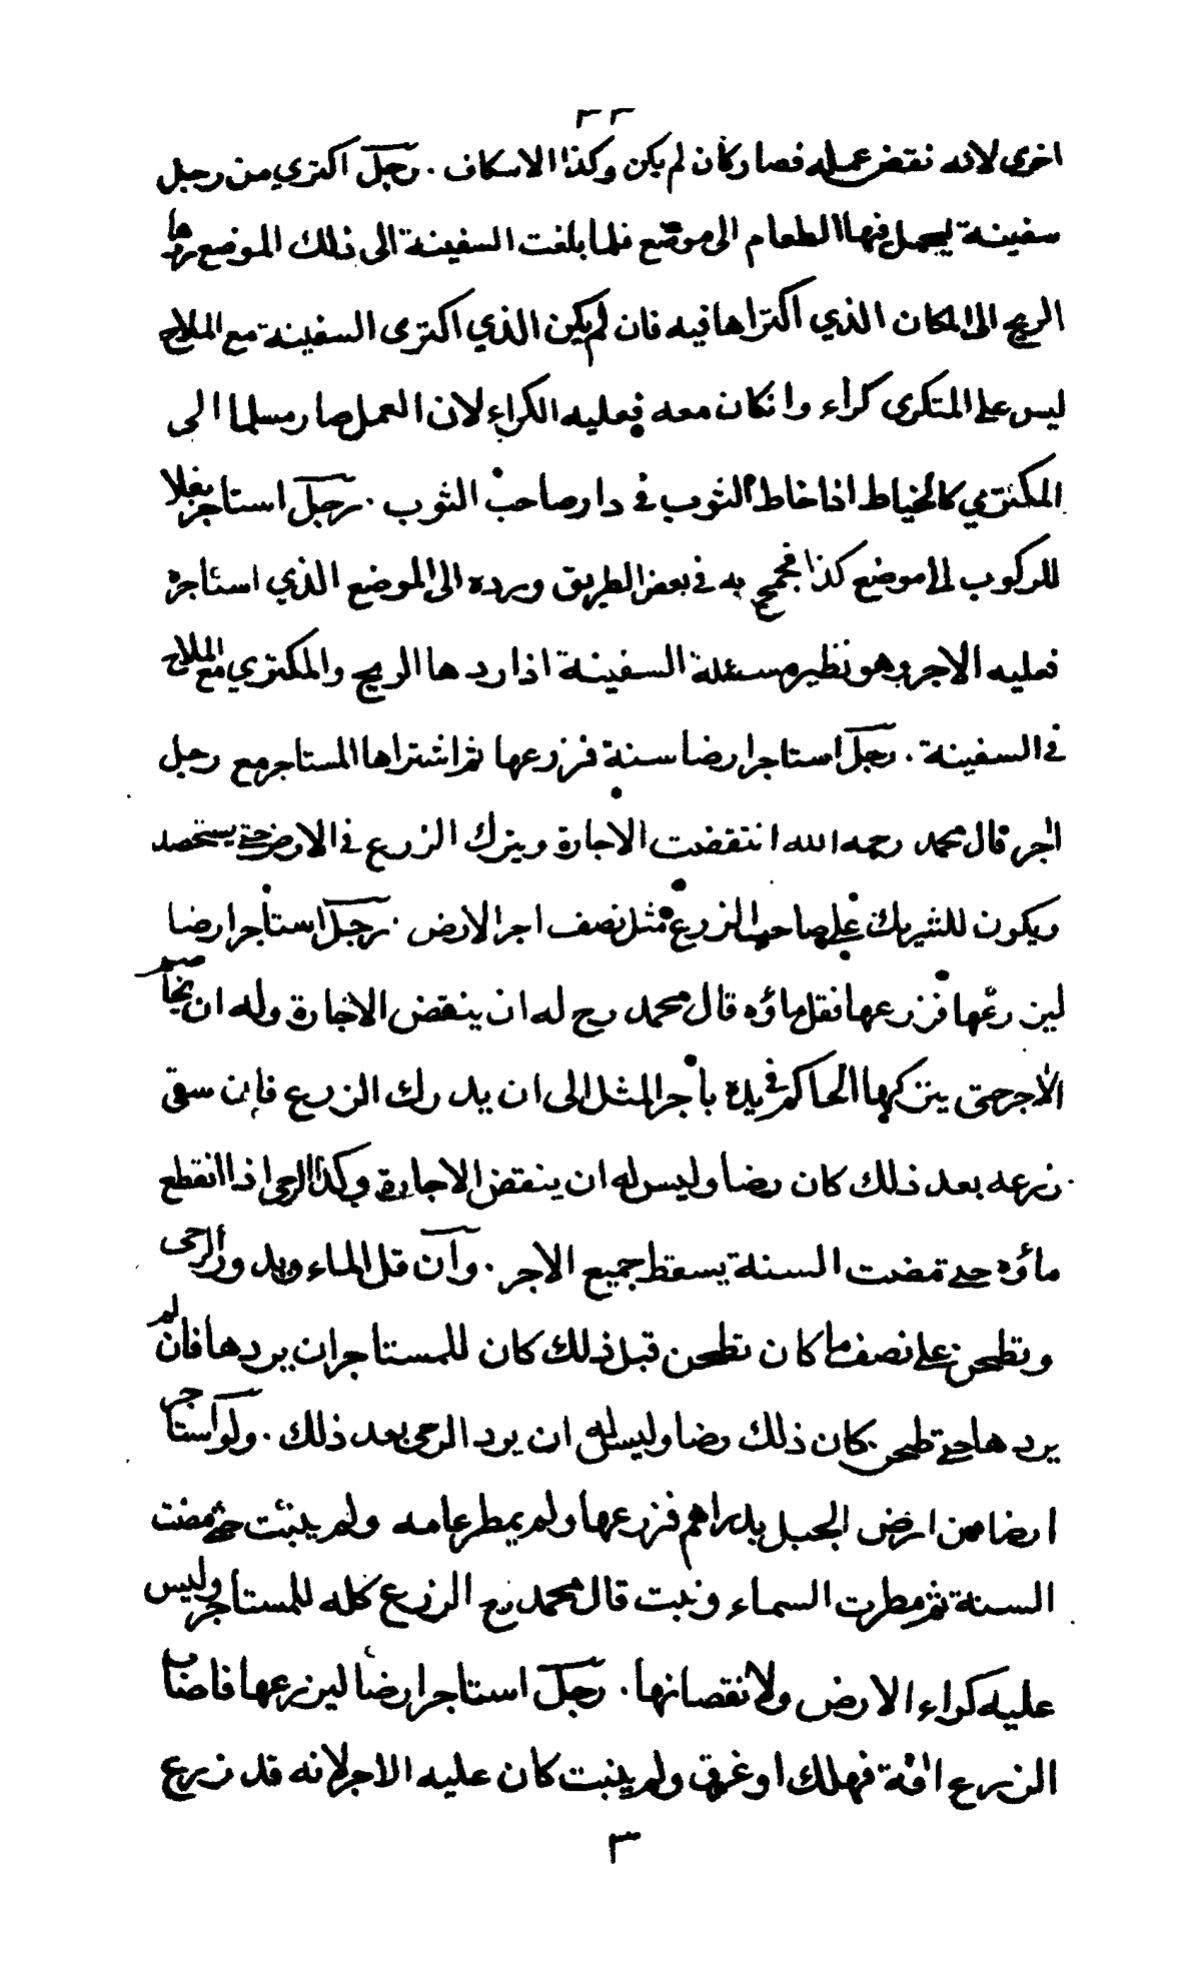 ٣٣
اخرى لانه نقض عمله فصار كأن لم يكن وكذا الاسكاف . رجل اكترى من رجل
سفينة ليحمل فيها الطعام الى موضع فلما بلغت السفينة الى ذلك الموضع ردها
الريح الى المكان الذي اكتراها فيه فان لم يكن الذي اكترى السفينة مع الملاح
ليس على المتكرى كراء وا نكان معه فعليه الكراء لان العمل صار مسلما الى
المكتري كالخياط اذا خاط الثوب في دار صاحب الثوب . رجل استاجر بغلا
للركوب الى موضع كذا فجمح به في بعض الطريق ورده الى الموضع الذي استاجره
فعليه الاجر وهو نظير مسئلة السفينة اذا ردها الريح والمكتري مع الملاح
في السفينة . رجل استاجر ارضا سنة فزرعها ثم اشتراها المستاجر مع رجل
اخر قال محمد رحمه الله انتقضت الاجارة ويترك الزرع في الارض حتى يستحصد
ويكون للشريك على صاحب الزرع مثل نصف اجر الارض . رجل استأجر ارضا
ليزرعها فزرعها فقل ماؤه قال محمد رح له ان ينقض الاجارة وله ان يخاصم
الأجر حتى يتركها الحاكم في يده بأجر المثل الى ان يدرك الزرع فإن سقى
زرعه بعد ذلك كان رضا وليس له ان ينقض الاجارة وكذا الرحى اذا انقطع
ماؤه حتى مضت السنة يسقط جميع الاجر . وان قل الماء ويدور الرحى
وتطحن على نصف ما كان تطحن قبل ذلك كان للمستاجر ان يردها فان لم
يردها حتى طحن كان ذلك رضا وليس له ان يرد الرحى بعد ذلك . ولو استاجر
ارضا من ارض الجبل بدراهم فزرعها ولم يمطر عامه ولم ينبت حتى مضت
السنة ثم مطرت السماء ونبت قال محمد رح الزرع كله للمستاجر وليس
عليه كراء الارض ولا نقصانها . رجل استاجر ارضا ليزرعها فاصاب
الزرع افة فهلك او غرق ولم ينبت كان عليه الاجر لانه قد زرع
٣